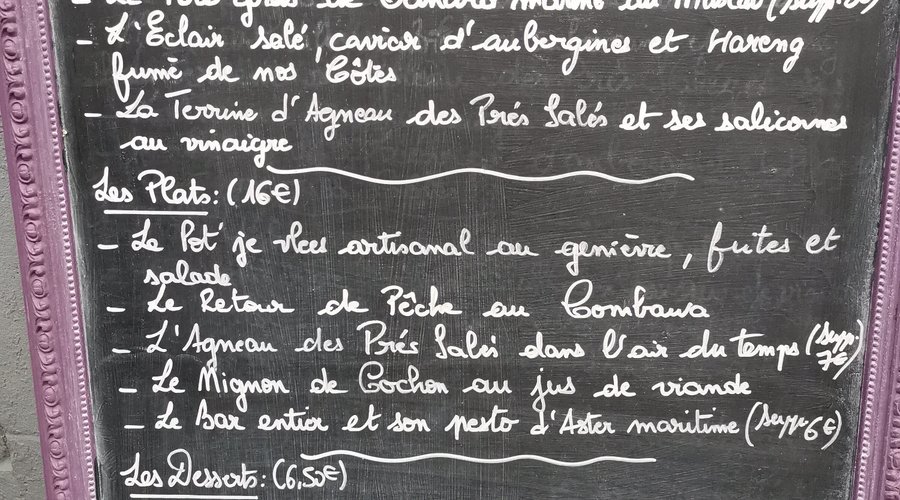 - L'Eclair salé, caviar d'aubergines et Hareng
fumé de nos Côtes
- La Terrine d'Agneau des Prés Salés et ses salicornes
au vinaigre
Les Plats: (16€)
- Le Pot' je vlees artisanal au genièvre, frites et
salade
- Le Retour de Pêche au Combawa
- L'Agneau des Prés Salés dans l'air du temps (supp. 7€)
- Le Mignon de Cochon au jus de viande
- Le Bar entier et son pesto d'Aster maritime (supp 6€)
Les Desserts: (6,50€)